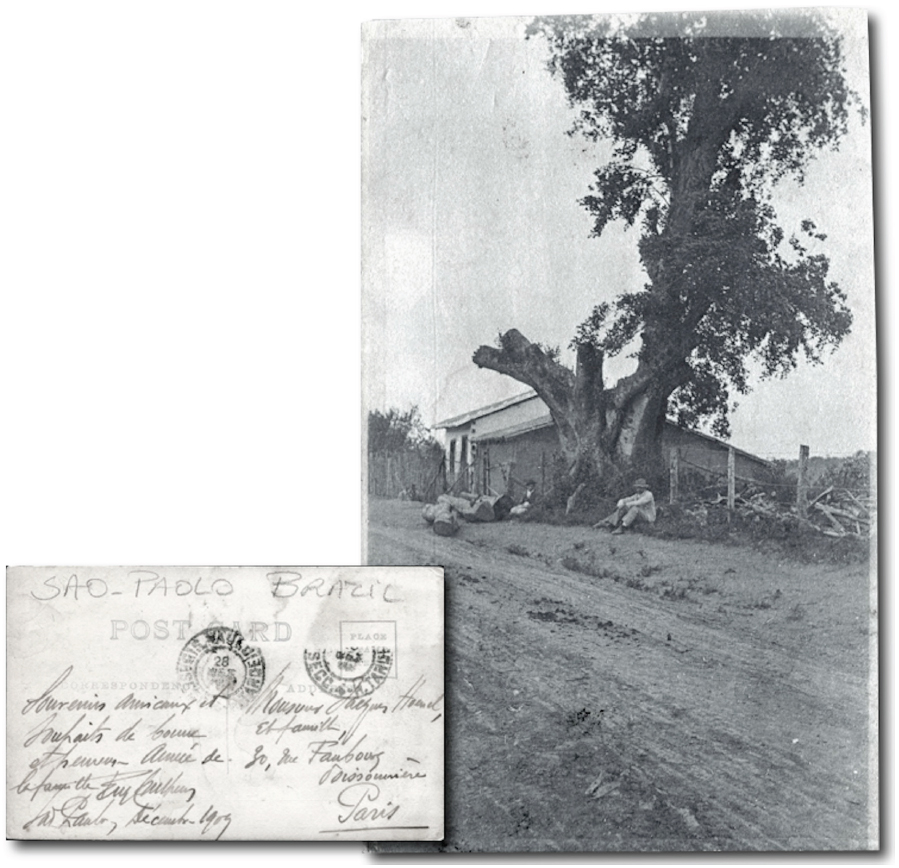 SAO-PAOLO BRAZIL
POST CARD
PLACE
CORRESPONDENCE
ADDRESS
28
Souvenirs amicaux et
Souhaits de bonne
et heureuse Année de
la famille
Sao Paulo, Décembre 1909
Monsieur Jacques
et famille,
30, rue Faubourg
Poissonnière
Paris